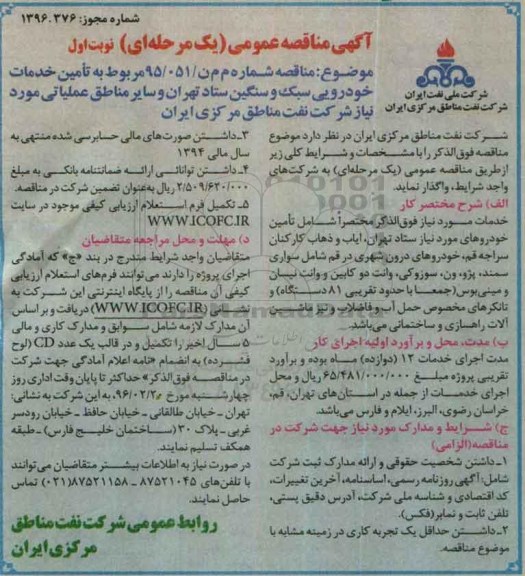 شماره مجوز: ۱۳۹۶.۳۷۶
آگهی مناقصه عمومی (یک مرحله‌ای) نوبت اول
شرکت ملی نفت ایران
شرکت نفت مناطق مرکزی ایران
موضوع: مناقصه شماره م م ن/۹۵/۰۵۱ مربوط به تأمین خدمات
خودرویی سبک و سنگین ستاد تهران و سایر مناطق عملیاتی مورد
نیاز شرکت نفت مناطق مرکزی ایران
شرکت نفت مناطق مرکزی ایران در نظر دارد موضوع
مناقصه فوق‌الذکر را با مشخصات و شرایط کلی زیر
از طریق مناقصه عمومی (یک مرحله‌ای) به شرکت‌های
واجد شرایط، واگذار نماید.
الف) شرح مختصر کار
خدمات مورد نیاز فوق‌الذکر مختصراً شامل تأمین
خودروهای مورد نیاز ستاد تهران، ایاب و ذهاب کارکنان
سراجه قم، خودروهای درون شهری در قم شامل سواری
سمند، پژو، ون، سوزوکی، وانت دو کابین و وانت نیسان
و مینی‌بوس (جمعاً با حدود تقریبی ۸۱ دستگاه) و
تانکرهای مخصوص حمل آب و فاضلاب و نیز ماشین
آلات راهسازی و ساختمانی می‌باشد.
ب) مدت، محل و برآورد اولیه اجرای کار
مدت اجرای خدمات ۱۲ (دوازده) ماه بوده و برآورد
تقریبی پروژه مبلغ ۶۵/۴۸۱/۰۰۰/۰۰۰ ریال و محل
اجرای خدمات از جمله در استان‌های تهران، قم،
خراسان رضوی، البرز، ایلام و فارس می‌باشد.
ج) شرایط و مدارک مورد نیاز جهت شرکت در
مناقصه (الزامی)
۱ـ داشتن شخصیت حقوقی و ارائه مدارک ثبت شرکت
شامل: آگهی روزنامه رسمی، اساسنامه، آخرین تغییرات،
کد اقتصادی و شناسه ملی شرکت، آدرس دقیق پستی،
تلفن ثابت و نمابر (فکس).
۲ـ داشتن حداقل یک تجربه کاری در زمینه مشابه با
موضوع مناقصه.
۳ـ داشتن صورت‌های مالی حسابرسی شده منتهی به
سال مالی ۱۳۹۴
۴ـ داشتن توانائی ارائه ضمانتنامه بانکی به مبلغ
۲/۵۰۹/۶۲۰/۰۰۰ ریال به عنوان تضمین شرکت در مناقصه.
۵ـ تکمیل فرم استعلام ارزیابی کیفی موجود در سایت
WWW.ICOFC.IR
د) مهلت و محل مراجعه متقاضیان
متقاضیان واجد شرایط مندرج در بند «ج» که آمادگی
اجرای پروژه را دارند می‌توانند فرم‌های استعلام ارزیابی
کیفی آن مناقصه را از پایگاه اینترنتی این شرکت به
نشانی (WWW.ICOFC.IR) دریافت و بر اساس
آن مدارک لازمه شامل سوابق و مدارک کاری و مالی
۵ سال اخیر را تکمیل و در قالب یک عدد CD (لوح
فشرده) به انضمام «نامه اعلام آمادگی جهت شرکت
در مناقصه فوق‌الذکر» حداکثر تا پایان وقت اداری روز
چهارشنبه مورخ ۹۶/۰۲/۲۰، به این شرکت به نشانی:
تهران ـ خیابان طالقانی ـ خیابان حافظ ـ خیابان رودسر
غربی ـ پلاک ۳۰ (ساختمان خلیج فارس) ـ طبقه
همکف تسلیم نمایند.
در صورت نیاز به اطلاعات بیشتر متقاضیان می‌توانند
با تلفن‌های ۸۷۵۲۱۰۴۵ ـ ۸۷۵۲۱۱۵۸(۰۲۱) تماس
حاصل نمایند.
روابط عمومی شرکت نفت مناطق
مرکزی ایران